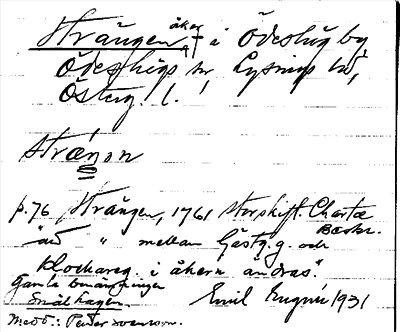 Strängen, åker i Ödeshög by,
Ödeshögs sn, Lysings hd,
Östg. l.
strængon
p.76 Strängen, 1761 storskift. Chartæ
Beskr.
"åd " mellan Gästg.g. och
Klockareg. i åkern ändras".
Gamla
Småhagen
Emil Eugrin 1931
Medd.: Peder Svenson.